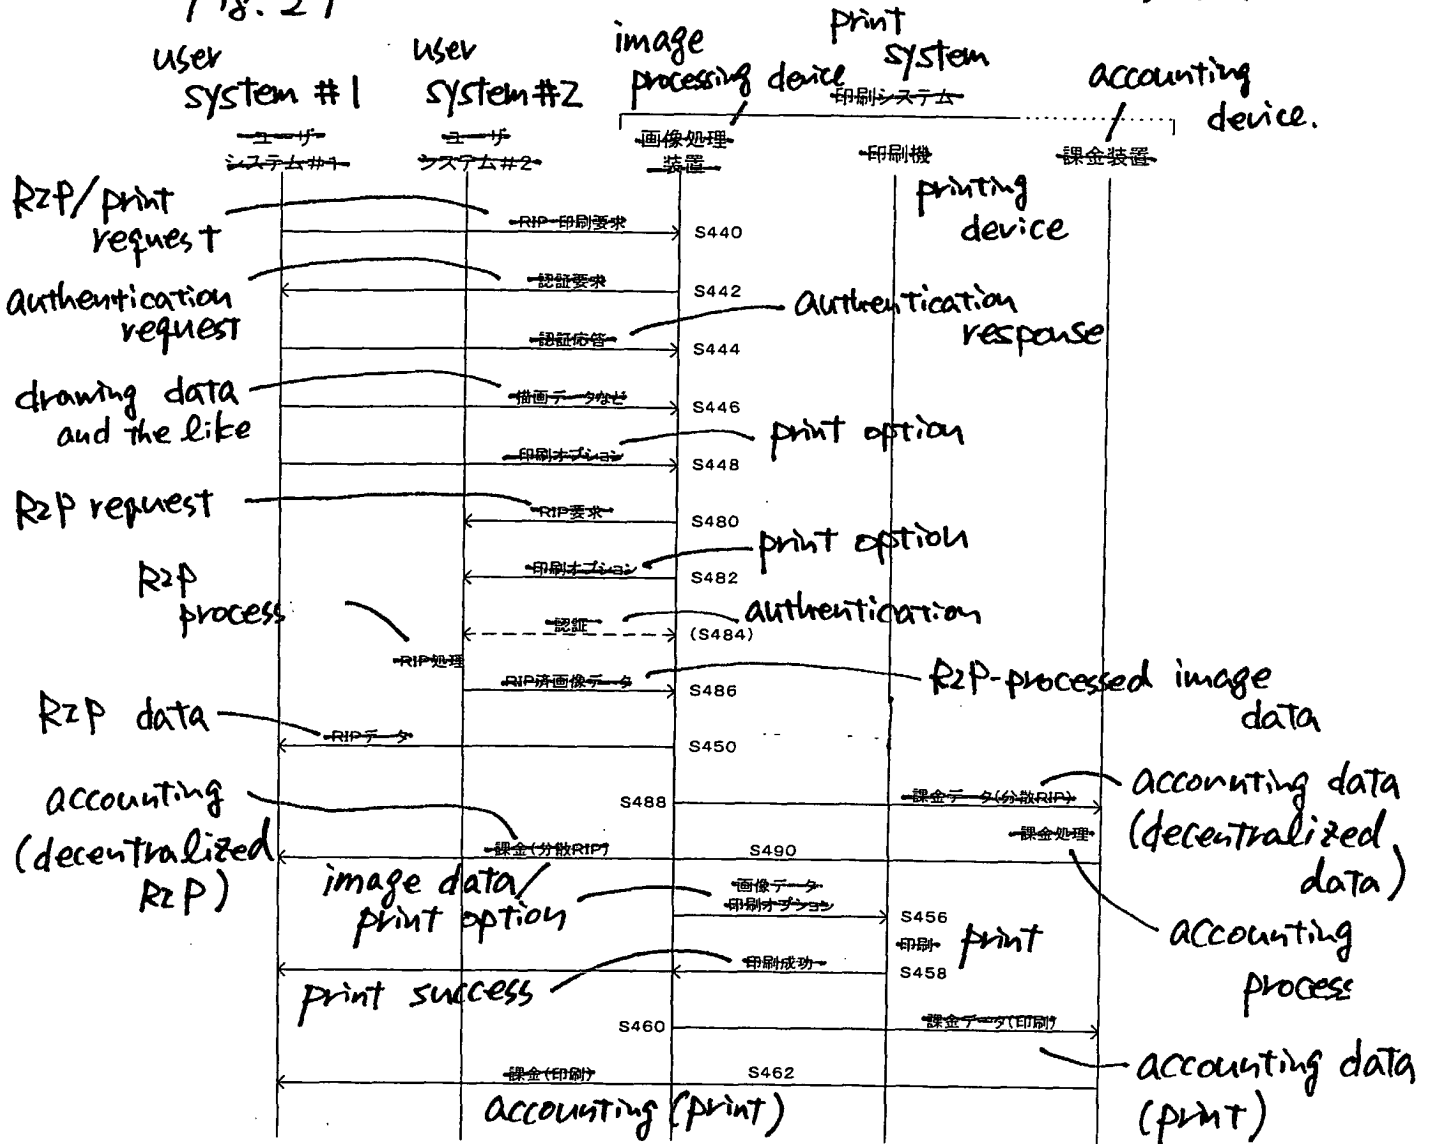 Fig. 21
user
system #1
user
system #2
image
processing device
print
system
accounting
device.
印刷システム
ユーザ
システム#1
ユーザ
システム#2
画像処理
装置
印刷機
課金装置
printing
device
RIP/print
request
RIP・印刷要求
S440
authentication
request
認証要求
S442
authentication
response
認証応答
S444
drawing data
and the like
描画データなど
S446
print option
印刷オプション
S448
RIP request
RIP要求
S480
print option
印刷オプション
S482
RIP
process
authentication
認証
(S484)
RIP処理
RIP済画像データ
S486
RIP-processed image
data
RIP data
RIPデータ
S450
accounting
(decentralized
RIP)
S488
課金データ(分散RIP)
accounting data
(decentralized
data)
課金処理
課金(分散RIP)
S490
image data/
print option
画像データ
印刷オプション
S456
accounting
process
印刷
print
印刷成功
S458
print success
S460
課金データ(印刷)
accounting data
(print)
課金(印刷)
S462
accounting (print)